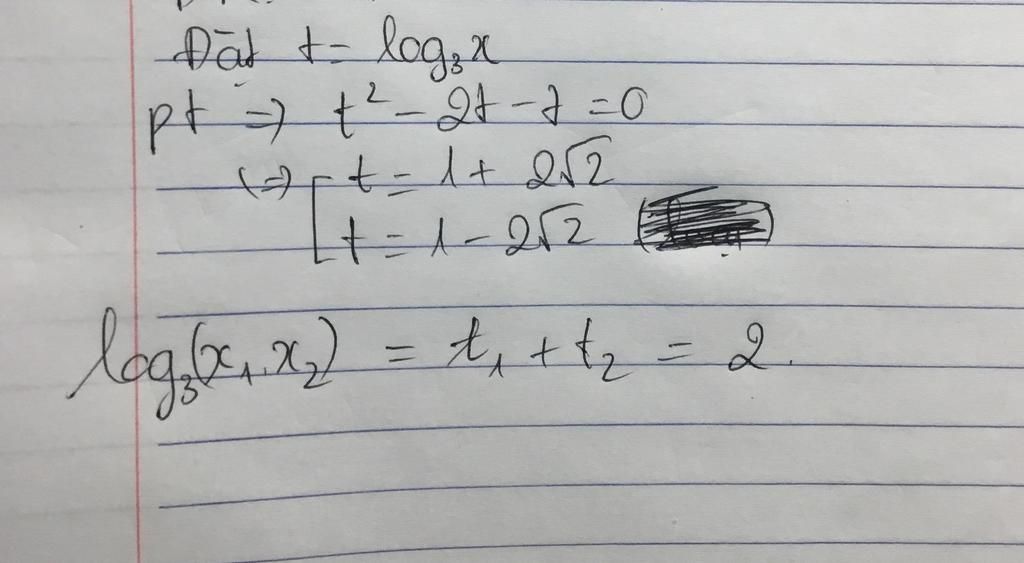 Đặt t = log₃x
pt ⇒ t² - 2t - 7 = 0
⇔ [ t = 1 + 2√2
t = 1 - 2√2
log₃(x₁.x₂) = t₁ + t₂ = 2.